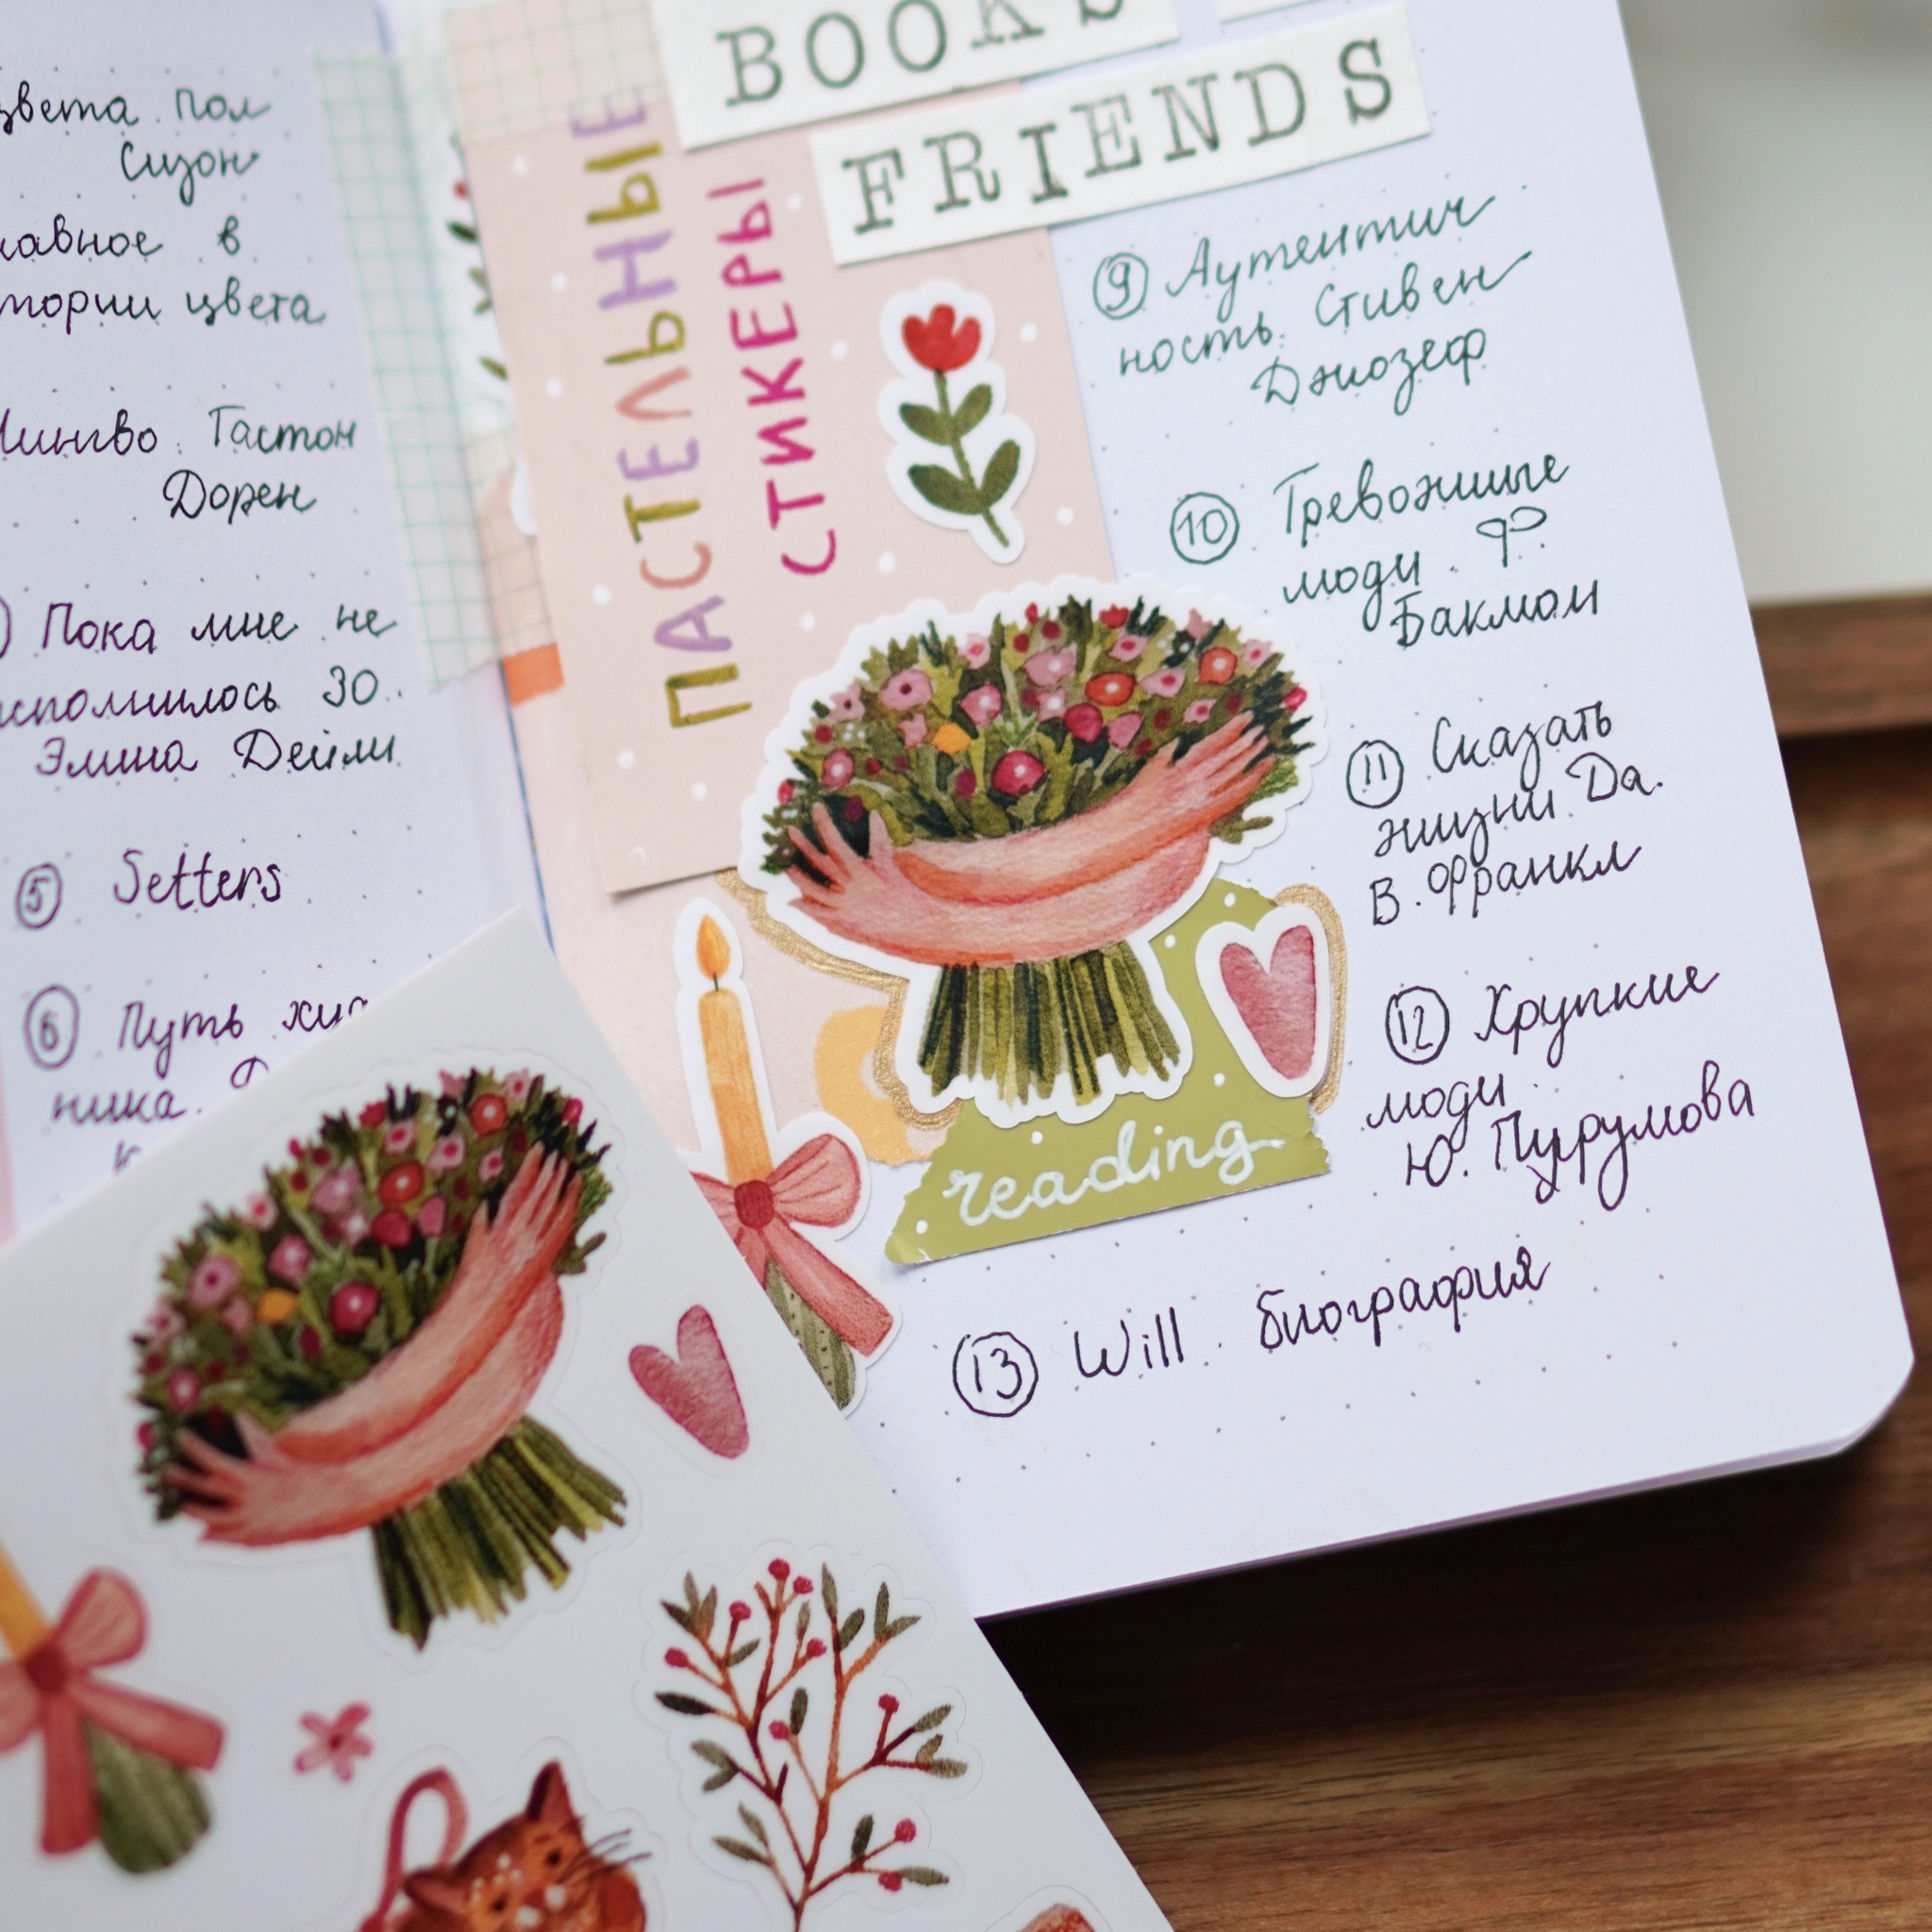 цвета. Пол
Сизон
в
цвета
Лингво. Гастон
Дорен
Пока мне не
исполнилось 30.
Эмина Дейли
5 Setters
6 Путь
ника.
BOOKS
FRIENDS
ПАСТЕЛЬНЫЕ
СТИКЕРЫ
9 Аутентич
ность. Стивен
Джозеф
10 Тревожные
люди. Ф.
Бакман
11 Сказать
жизни Да.
В. Франкл
12 Хрупкие
люди.
Ю. Пурумова
reading
13 Will. биография